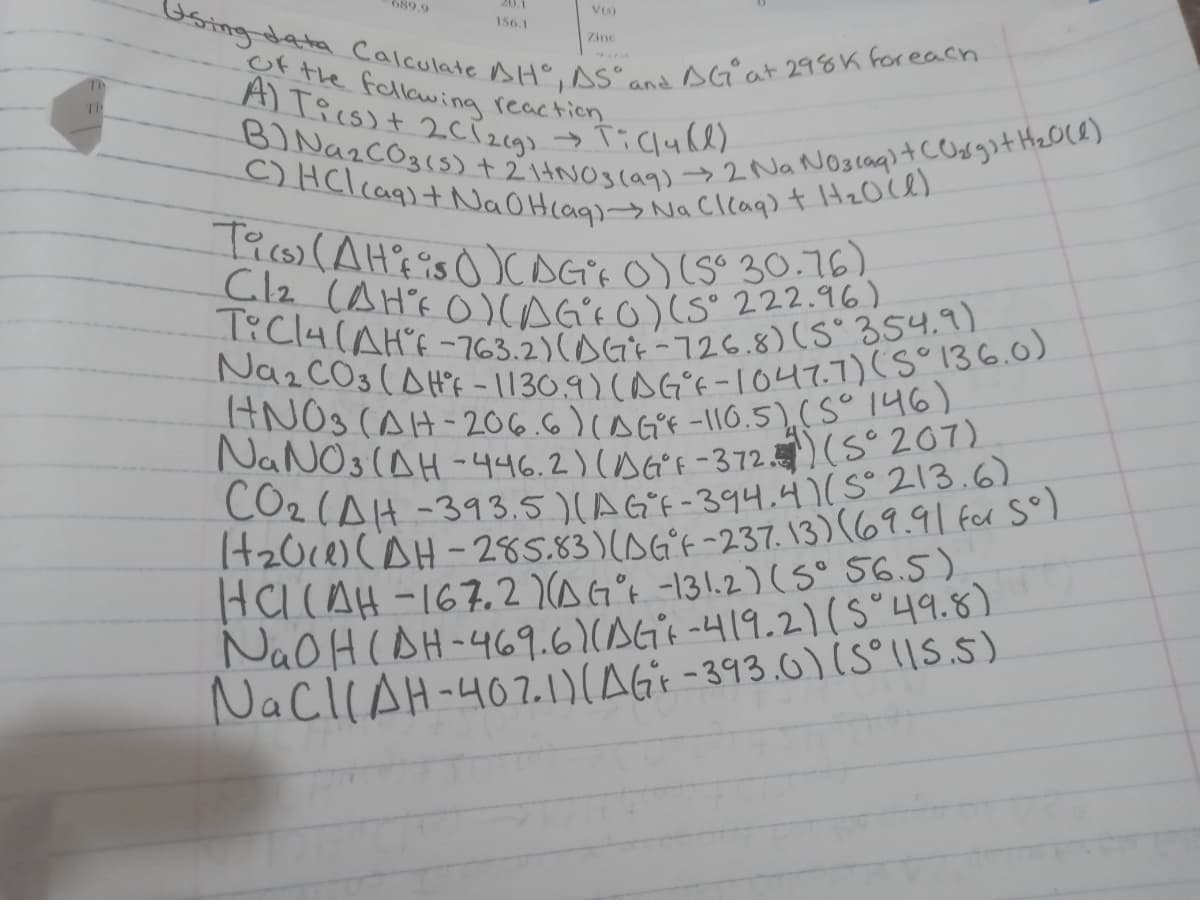 689.9
20.1
156.1
V(s)
Zinc
Using data Calculate ΔH°, ΔS° and ΔG° at 298K for each
of the following reaction
A) Ti(s) + 2Cl2(g) → TiCl4(l)
B) Na2CO3(s) + 2HNO3(aq) → 2NaNO3(aq) + CO2(g) + H2O(l)
C) HCl(aq) + NaOH(aq) → NaCl(aq) + H2O(l)
Ti(s) (ΔH°f is 0) (ΔG°f 0) (S° 30.76)
Cl2 (ΔH°f 0) (ΔG°f 0) (S° 222.96)
TiCl4 (ΔH°f -763.2) (ΔG°f -726.8) (S° 354.9)
Na2CO3 (ΔH°f -1130.9) (ΔG°f -1047.7) (S° 136.0)
HNO3 (ΔH -206.6) (ΔG°f -110.5) (S° 146)
NaNO3 (ΔH -446.2) (ΔG°f -372.4) (S° 207)
CO2 (ΔH -393.5) (ΔG°f -394.4) (S° 213.6)
H2O(l) (ΔH -285.83) (ΔG°f -237.13) (69.91 for S°)
HCl (ΔH -167.2) (ΔG°f -131.2) (S° 56.5)
NaOH (ΔH -469.6) (ΔG°f -419.2) (S° 49.8)
NaCl (ΔH -407.1) (ΔG°f -393.0) (S° 115.5)